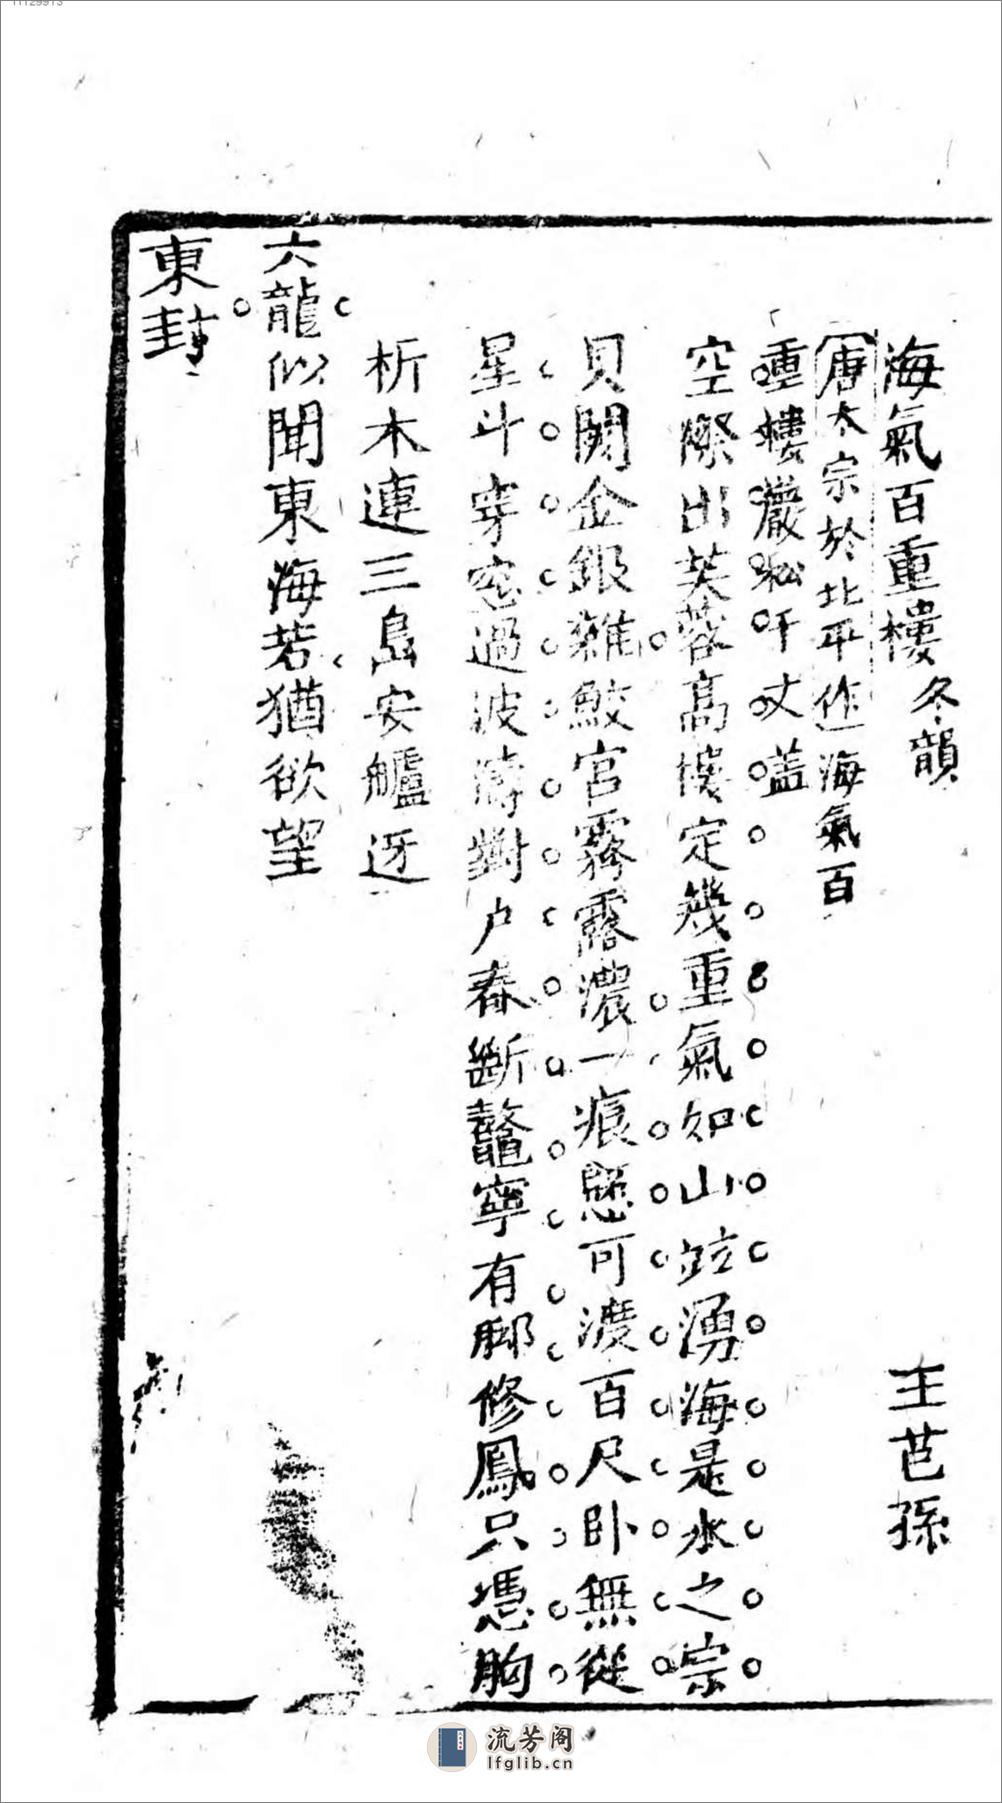 11129913
海氣百重樓 冬韻 王芑孫
唐太宗於北平作海氣百
重樓巖松千丈蓋
空際出芙蓉高樓定幾重氣如山竝湧海是水之宗
貝闕金銀雜鮫宮霧露濃一痕愁可渡百尺卧無從
星斗穿窓過波濤對户舂斷鼇寧有脚修鳳只憑胸
析木連三島安艫迓
六龍似聞東海若猶欲望
東封
流芳阁
lfglib.cn